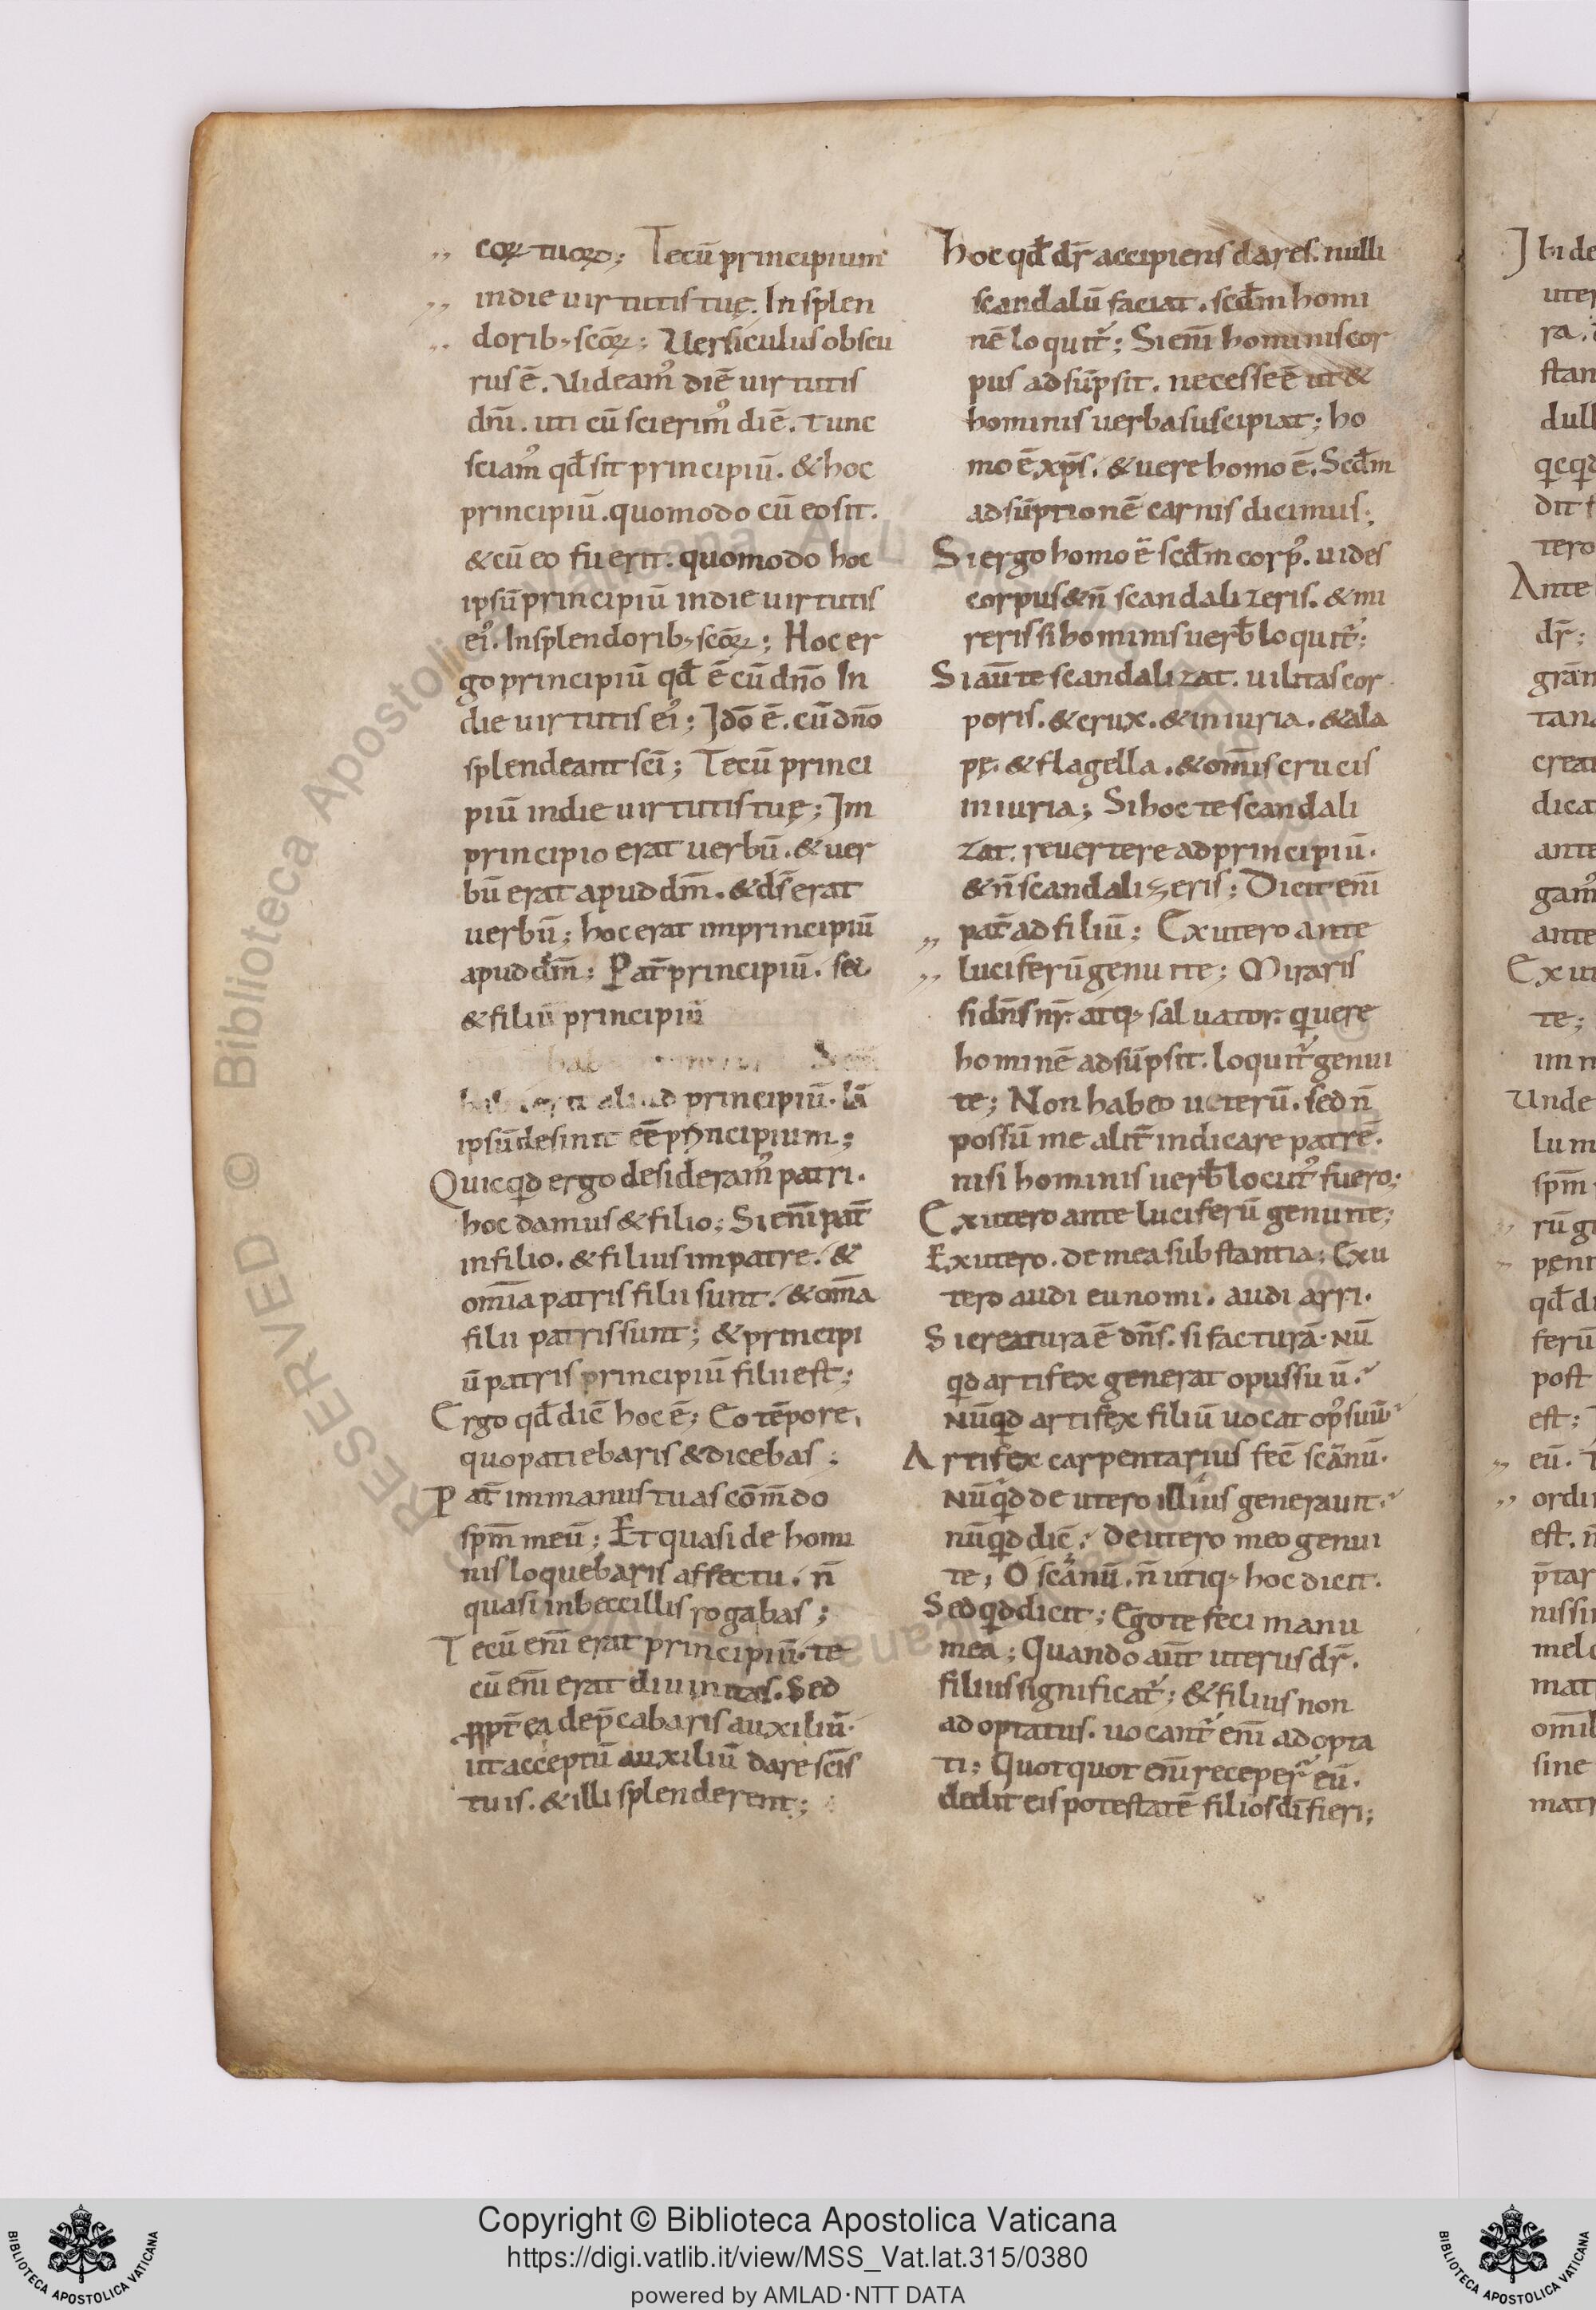 corꝝ tuorꝝ; Tecū principium
in die uirtutis tuę. In splen
dorib; scōꝝ; Uersiculus obscu
rus ē. Uideam᷒ diē uirtutis
dn̄i. uti cū scierim᷒ diē. tunc
sciam᷒ qđ sit principiū. & hoc
principiū. quomodo cū eo sit.
& cū eo fuerit. quomodo hoc
ipsū principiū in die uirtutis
ei᷒. In splendorib; scōꝝ; Hoc er
go principiū qđ ē cū dn̄o In
die uirtutis ei᷒; Idō ē. cū dn̄o
splendeant sc̄i; Tecū princi
piū in die uirtutis tuę; Im
principio erat uerbū. & uer
bū erat apud dm̄. & ds̄ erat
uerbū; hoc erat imprincipiū
apud dm̄; Pat̄ principiū. sed
& filiū principiū
aliud principiū. iā
ipsū desinit eē principium;
Quicqd ergo desideram᷒ patri.
hoc damus & filio; Si enī pat̄
in filio. & filius impatre. &
om̄ia patris filii sunt. & om̄a
filii patris sunt; & principi
ū patris principiū filii est;
Ergo qđ dic̄ hoc ē; Eo tēpore,
quo patiebaris & dicebas;
Pat̄ immanus tuas cōm̄do
spm̄ meū; Et quasi de homi
nis loquebaris affectu. n̄
quasi inbeccillis rogabas;
Tecū enī erat principiū. te
cū enī erat diuinitas. Sed
ꝓpt̄ ea dep̄cabaris auxiliū.
ut acceptū auxiliū dare sc̄is
tuis. & illi splenderent;
hoc qđ dr̄ accipiens dares. nulli
scandalū faciat. scđm homi
nē loquit̄; Si enī hominis cor
pus adsūpsit. necesse ē ut &
hominis uerba suscipiat; ho
mo ē xp̄s. & uere homo ē. Scđm
adsūptionē carnis dicimus;
Si ergo homo ē scđm corp᷒. uides
corpus & n̄ scandalizeris. & mi
reris si hominis uerƀ loquit̄;
Si aūt te scandalizat. uilitas cor
poris. & crux. & iniuria. & ala
pę. & flagella. & om̄is crucis
iniuria; Si hoc te scandali
zat. reuertere ad principiū.
& n̄ scandalizeris; Dicit enī
pat̄ ad filiū; Ex utero ante
luciferū genui te; Miraris
si dn̄s nr̄. atq; saluator. qui uere
hominē adsūpsit. loquit̄ genui
te; Non habeo ueterū. sed n̄
possū me alit̄ indicare patrē.
nisi hominis uerƀ locut᷒ fuero;
Ex utero ante luciferū genui te;
Ex utero. de mea substantia; Exu
tero audi eunomi. audi arri.
Si creatura ē dn̄s. si facturā. nū
qd artifex generat opus suū.
Nūqd artifex filiū uocat op᷒ suū
Artifex carpentarius fec̄ scānū.
Nūqd de utero illius generauit.
nūqd dic̄. de utero meo genui
te; O scānū. n̄ utiq; hoc dicit.
Sed qd dicit; Ego te feci manu
mea; Quando aūt uterus dr̄.
filius significat̄; & filius non
adoptatus. uocant̄ enī adopta
ti; Quotquot enī receper̄ eū.
dedit eis potestatē filios dī fieri;
Copyright © Biblioteca Apostolica Vaticana
https://digi.vatlib.it/view/MSS_Vat.lat.315/0380
powered by AMLAD·NTT DATA